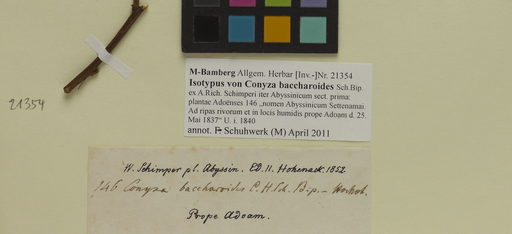 21354
M-Bamberg Allgem. Herbar [Inv.-]Nr. 21354
Isotypus von Conyza baccharoides Sch.Bip.
ex A.Rich. Schimperi iter Abyssinicum sect. prima:
plantae Adoënses 146 „nomen Abyssinicum Settenamai.
Ad ripas rivorum et in locis humidis prope Adoam d. 25.
Mai 1837“ U. i. 1840
annot. Schuhwerk (M) April 2011
W. Schimper pl. Abyssin. Ed. II. Hohenack. 1852
146 Conyza baccharoides C. H. Sch. Bip. –
Prope Adoam.